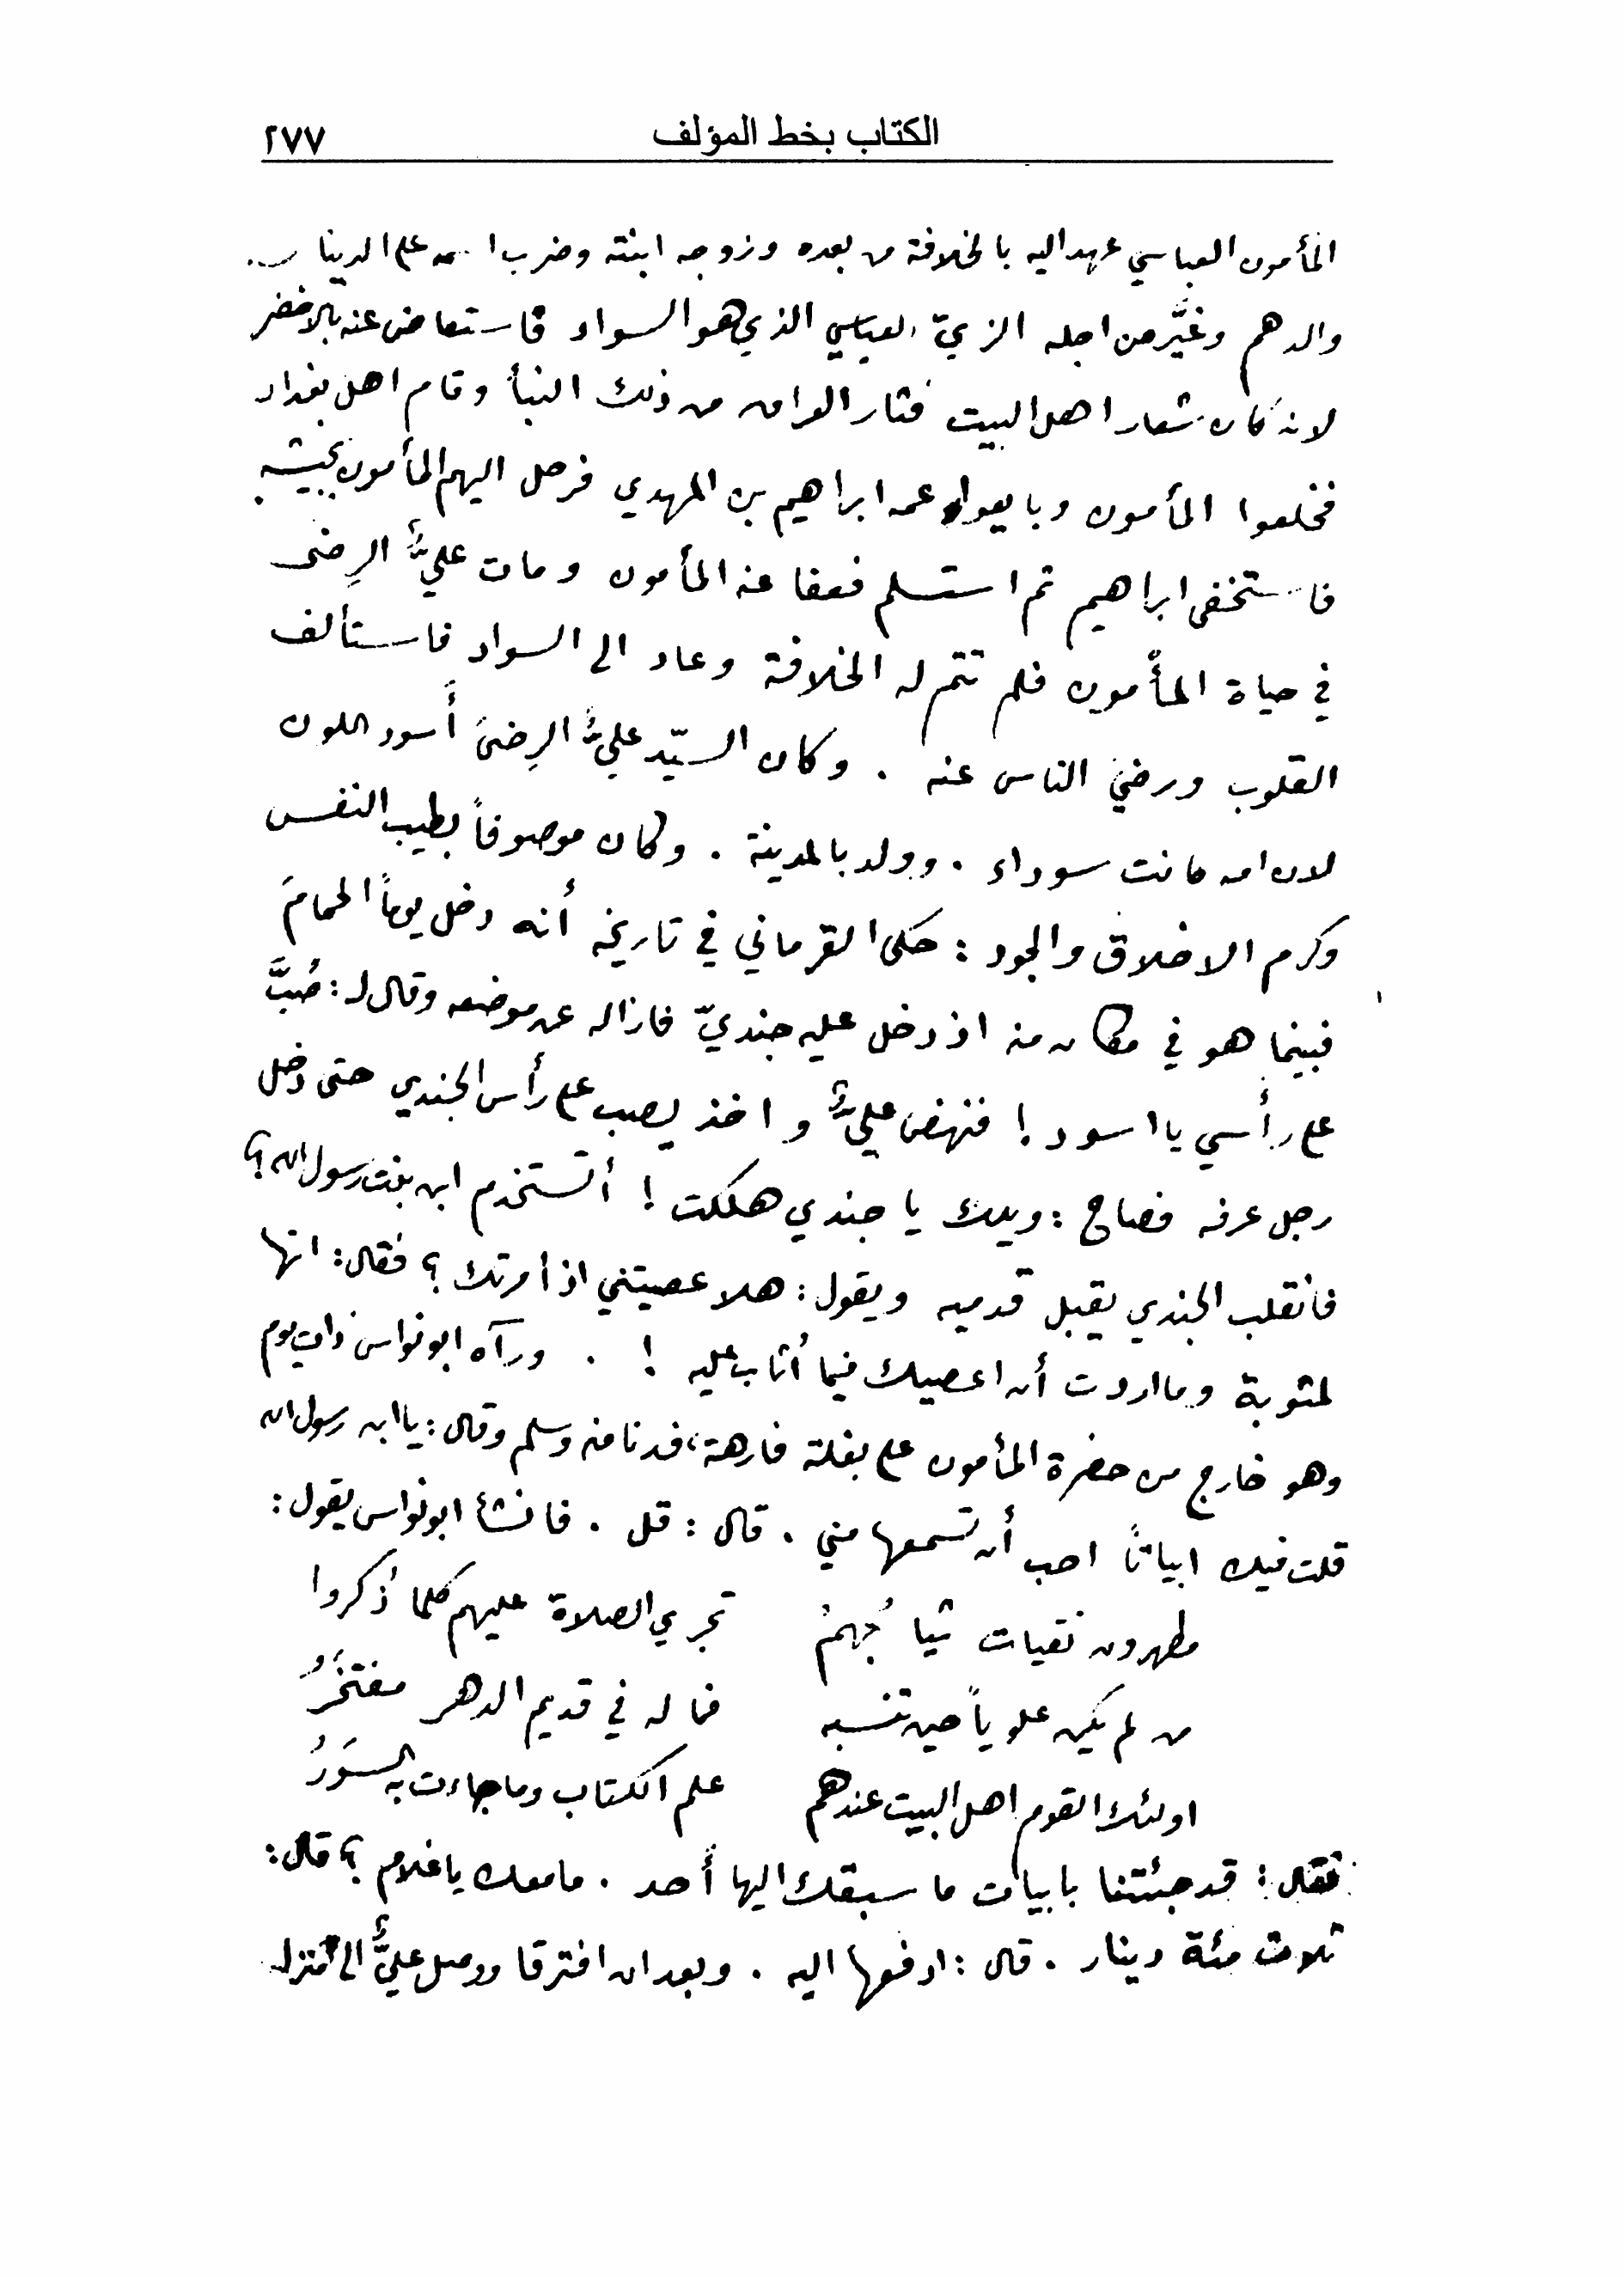 الكتاب بخط المؤلف ٢٧٧
المأمون العباسي عهد اليه بالخلافة من بعده وزوجه ابنته وضرب اسمه على الدينار
والدرهم وغيَّر من اجله الزيّ العباسي الذي هو السواد فاستعاض عنه بالاخضر
لانه كان شعار اهل البيت فثار العراق من ذلك النبأ وقام اهل بغداد
فخلعوا المأمون وبايعوا عمه ابراهيم بن المهدي فرحل اليهم المأمون بجيشه
فاستخفى ابراهيم ثم استسلم فعفا عنه المأمون ومات عليٌّ الرِضى
في حياة المأمون فلم تتم له الخلافة وعاد الى السواد فاستألف
القلوب ورضيَ الناس عنه . وكان السيّد عليٌّ الرِضىَ أَسود اللون
لان امه كانت سوداء . وولد بالمدينة . وكان موصوفاً بطيب النفس
وكرم الاخلاق والجود : حكى القرماني في تاريخه أنه دخل يوماً الحمامَ
فبينما هو في مكان منه اذ دخل عليه جنديّ فازاله عن موضعه وقال له : صُبَّ
على رأسي يا اسود ! فنهض عليٌّ واخذ يصب على رأس الجندي حتى دخل
رجل عرفه فصاح : ويلك يا جندي هلكت ! أتستخدم ابن بنت رسول الله ؟
فانقلب الجندي يقبل قدميه ويقول : هلا عصيتني اذ أمرتك ؟ فقال : انها
لمثوبة وما اردت أن اعصيك فيما أُثاب عليه ! . ورآه ابو نواس ذات يوم
وهو خارج من حضرة المأمون على بغلة فارهة ، فدنا منه وسلم وقال : يا ابن رسول الله
قلت فيك ابياتاً احب أن تسمعها مني . قال : قل . فانشأ ابو نواس يقول :
مطهرون نقيات ثيابُهمُ تجري الصلاة عليهم كلما ذُكروا
من لم يكن علوياً حين تنسبه فما له في قديم الدهر مفتخَرُ
اولئك القوم اهل البيت عندهم علم الكتاب وما جاءت به السوَرُ
فقال : قد جئتنا بابيات ما سبقك اليها أحد . ما معك يا غلام ؟ قال :
ثلاث مئة دينار . قال : ادفعها اليه . وبعد ان افترقا ووصل عليٌّ الى منزله